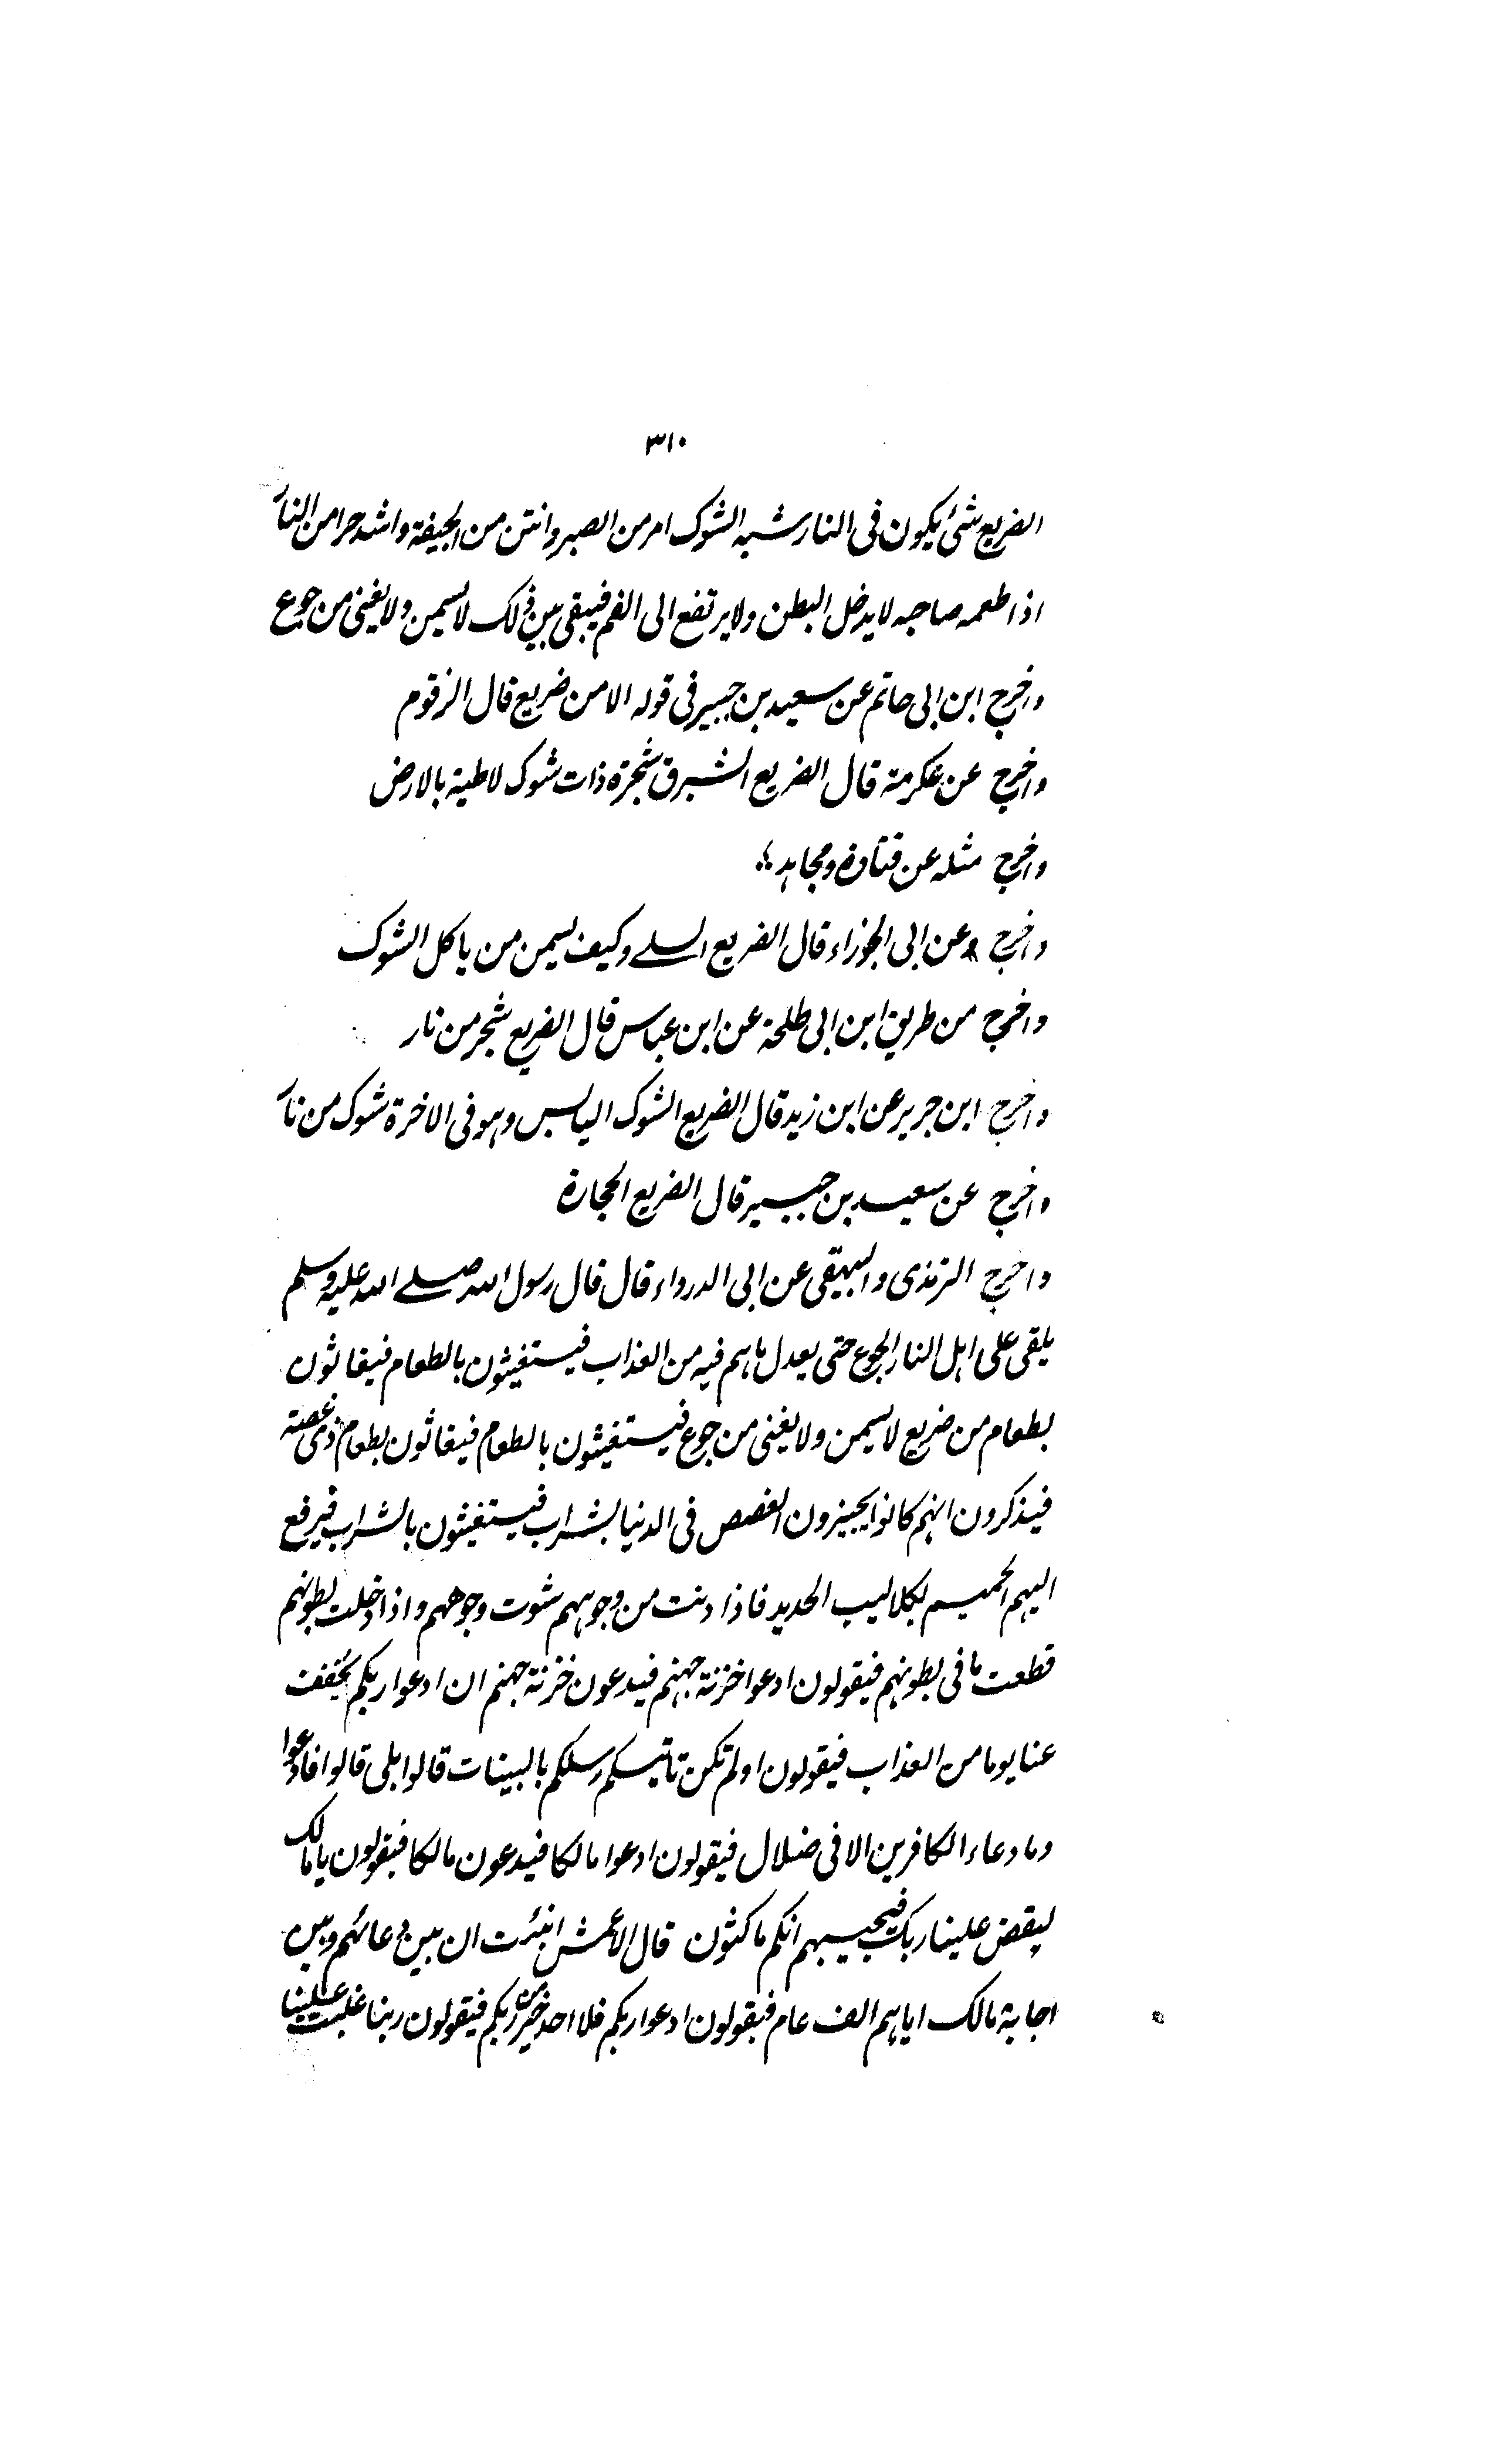 ۳۱۰
الضريع شئ يكون فى النار شبه الشوك امر من الصبر وانتن من الجيفة واشد حرا من النار
اذا طعمه صاحبه لا يدخل البطن ولا يرتفع الى الفم فيبقى بين ذلك لا يسمن ولا يغنى من جوع
واخرج ابن ابى حاتم عن سعيد بن جبير فى قوله الا من ضريع قال الزقوم
واخرج عن عكرمة قال الضريع الشبرق شجرة ذات شوك لاطية بالارض
واخرج مثله عن قتادة ومجاهد
واخرج عن ابى الجوزاء قال الضريع السلے وكيف يسمن من ياكل الشوك
واخرج من طريق ابن ابى طلحة عن ابن عباس قال الضريع شجر من نار
واخرج ابن جرير عن ابن زيد قال الضريع الشوك اليابس وهو فى الاخرة شوك من نار
واخرج عن سعيد بن جبير قال الضريع الحجارة
واخرج الترمذى والبيهقى عن ابى الدرداء قال قال رسول الله صلے الله عليه وسلم
يلقى على اهل النار الجوع حتى يعدل ما هم فيه من العذاب فيستغيثون بالطعام فيغاثون
بطعام من ضريع لا يسمن ولا يغنى من جوع فيستغيثون بالطعام فيغاثون بطعام ذى غصة
فيذكرون انهم كانوا يجيزون الغصص فى الدنيا بشراب فيستغيثون بالشراب فيرفع
اليهم الحميم بكلاليب الحديد فاذا دنت من وجوههم شوت وجوههم واذا دخلت بطونهم
قطعت ما فى بطونهم فيقولون ادعوا خزنة جهنم فيدعون خزنة جهنم ان ادعوا ربكم يخفف
عنا يوما من العذاب فيقولون اولم تكن تاتيكم رسلكم بالبينات قالوا بلى قالوا فادعوا
وما دعاء الكافرين الا فى ضلال فيقولون ادعوا مالكا فيدعون مالكا فيقولون يا مالك
ليقض علينا ربك فيجيبهم انكم ماكثون قال الاعمش انبئت ان بين دعائهم وبين
اجابة مالك اياهم الف عام فيقولون ادعوا ربكم فلا احد خير من ربكم فيقولون ربنا غلبت علينا